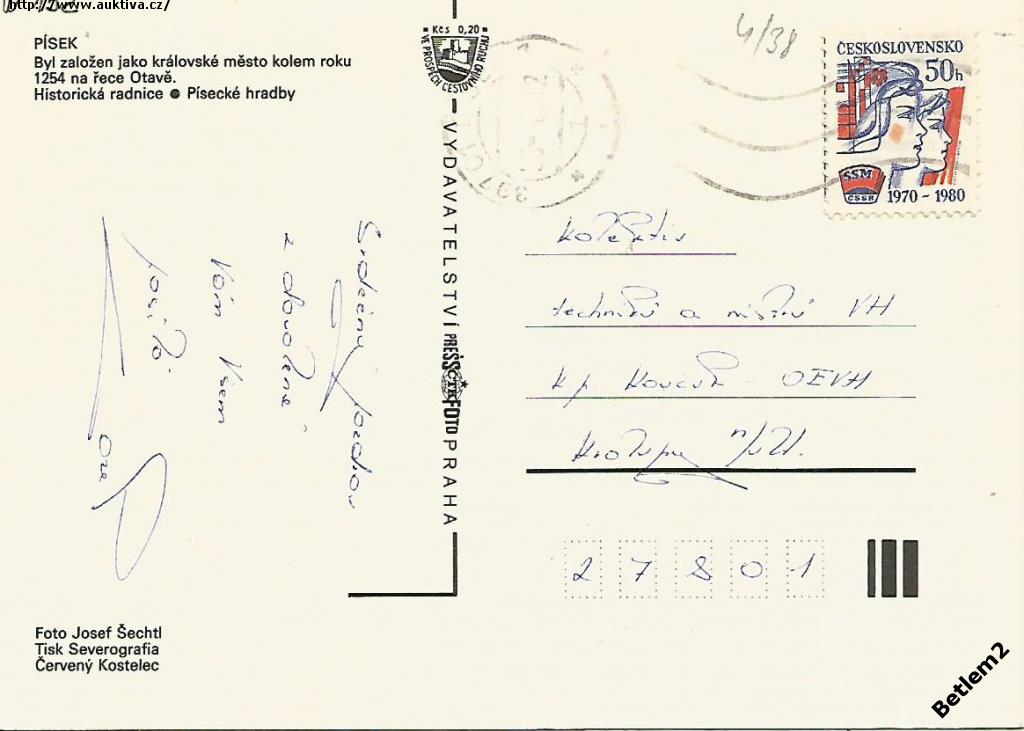 http://www.auktiva.cz/
PÍSEK
Byl založen jako královské město kolem roku
1254 na řece Otavě.
Historická radnice ● Písecké hradby
Kčs 0,20
VE PROSPĚCH CESTOVNÍHO RUCHU
VYDAVATELSTVÍ PRESSFOTO PRAHA
ČTK
397 01
4/38
ČESKOSLOVENSKO
50h
SSM
ČSSR
1970 - 1980
Srdečný pozdrav
z dovolené
Vám všem
posílá
Kolektiv
techniků a mistrů VH
k.p. Koučuk - OEVH
Kralupy n/Vlt.
27801
Foto Josef Šechtl
Tisk Severografia
Červený Kostelec
Betlem2